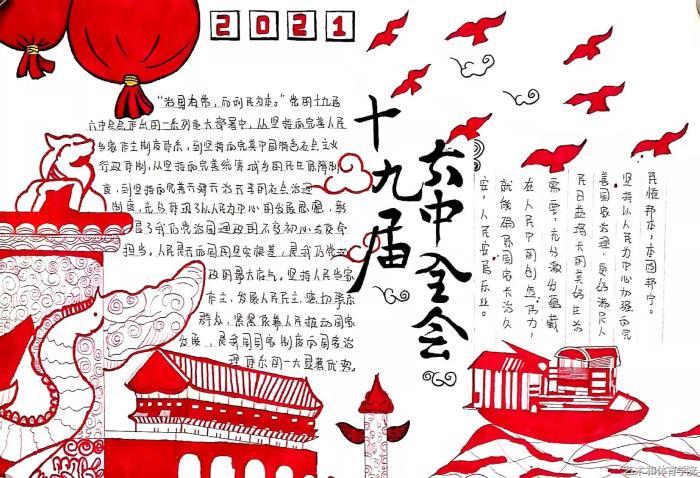 2021
十九届
六中全会
“治国有常，而利民为本。”党的十九届
六中全会作出的一系列重大部署中，从坚持和完善人民
当家作主制度体系，到坚持和完善中国特色社会主义
行政体制，从坚持和完善统筹城乡的民生保障制
度，到坚持和完善共建共治共享的社会治理
制度，充分体现了以人民为中心的发展思想，彰
显了我们党治国理政的不变初心与使命
担当。人民是共和国的坚实根基，是我们党执
政的最大底气。坚持人民当家
作主，发展人民民主，密切联系
群众，紧紧依靠人民推动国家
发展，是我国国家制度和国家治
理体系的一大显著优势。
民恒邦本，本固邦宁。
坚持以人民为中心加强和完
善国家治理，更好满足人
民日益增长的美好生活
需要，充分激发蕴藏
在人民中的创造伟力，
就能确保国家长治久
安，人民安居乐业。
艺术和体育学院